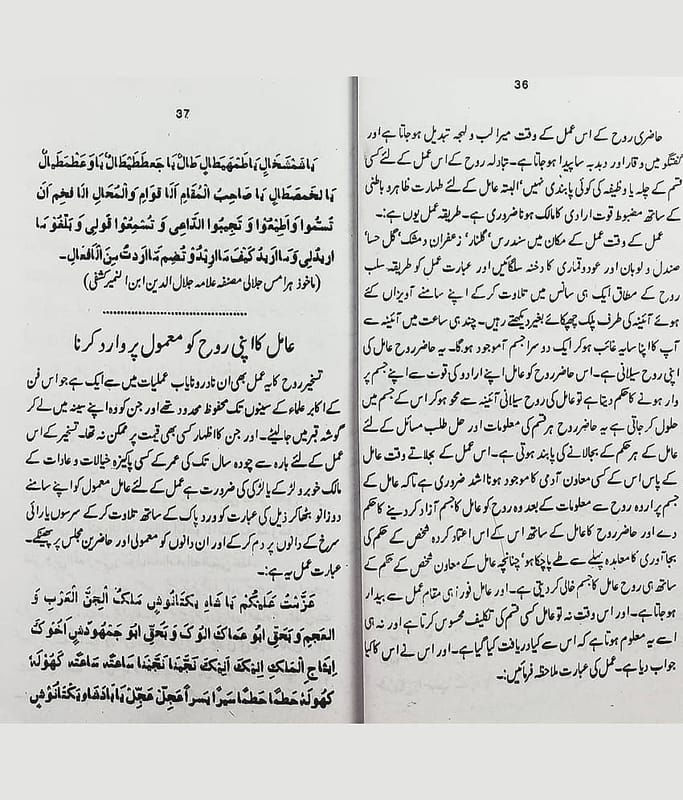 36
حاضری روح کے اس عمل کے وقت میرا لب و لہجہ تبدیل ہو جاتا ہے اور
گفتگو میں وقار اور دبدبہ سا پیدا ہو جاتا ہے۔ تبادلہ روح کے اس عمل کے لئے کسی
قسم کے چلہ یا وظیفہ کی کوئی پابندی نہیں‘ البتہ عامل کے لئے طہارت ظاہر و باطنی
کے ساتھ مضبوط قوت ارادی کا مالک ہونا ضروری ہے۔ طریقہ عمل یوں ہے:۔
عمل کے وقت عمل کے مکان میں سندرس‘ گلنار‘ زعفران و مشک‘ گل حنا‘
صندل و لوبان اور عود و قماری کا دخنہ سلگائیں اور عبارت عمل کو طریقہ سلب
روح کے مطابق ایک ہی سانس میں تلاوت کر کے اپنے سامنے آویزاں کئے
ہوئے آئینہ کی طرف پلک جھپکائے بغیر دیکھتے رہیں۔ چند ہی ساعت میں آئینہ سے
آپ کا اپنا سایہ غائب ہو کر ایک دوسرا جسم آموجود ہوگا۔ یہ حاضر روح عامل کی
اپنی روح سیلانی ہے۔ اس حاضر روح کو عامل اپنے ارادو کی قوت سے اپنے جسم پر
وار ہونے کا حکم دیتا ہے تو عامل کی روح سیلانی آئینہ سے محو ہو کر اس کے جسم میں
حلول کر جاتی ہے یہ حاضر روح ہر قسم کی معلومات اور حل طلب مسائل کے لئے
عامل کے ہر حکم کے بجالانے کی پابند ہوتی ہے۔ اس عمل کے بجالاتے وقت عامل
کے پاس اس کے کسی معاون آدمی کا موجود ہونا اشد ضروری ہے تاکہ عامل کے
جسم پر اردہ روح سے معلومات کے بعد وہ روح کو عامل کا جسم آزاد کر دینے کا حکم
دے اور حاضر روح کا عامل کے ساتھ اس کے اس اعتماد کردہ شخص کے حکم کی
بجا آوری کا معاہدہ پہلے سے طے پا چکا ہو‘ چنانچہ عامل کے معاون شخص کے حکم کے
ساتھ ہی روح عامل کا جسم خالی کر دیتی ہے۔ اور عامل فوراً ہی مقام عمل سے بیدار
ہو جاتا ہے۔ اور اس وقت نہ تو عامل کسی قسم کی تکلیف محسوس کرتا ہے اور نہ ہی
اسے یہ معلوم ہوتا ہے کہ اس سے کیا دریافت کیا گیا ہے۔ اور اس نے اس کا کیا
جواب دیا ہے۔ عمل کی عبارت ملاحظہ فرمائیں:۔
37
يَا طَالٍ يَا
يَا يَا صَاحِبَ الْمَقَامِ اَنَا قَوَام وَالْمُحَالِ اَنَا اَنْ
وَاَطِيْعُوْا وَ تُجِيبُوا الدَّاعِى وَ تَسْمَعُوْا قَوْلِى وَ مَا
وَ مَا اُرِيْدُ كَيْفَ مَا اُرِيْدُ مَا اَرَدتُ مِنَ الْاَفْعَالِ۔
(ماخوذ ہرامس جلالی مصنفہ علامہ جلال الدین ابن النمیر کشفی)
عامل کا اپنی روح کو معمول پر وارد کرنا
تسخیر روح کا یہ عمل بھی ان نادر و نایاب عملیات میں سے ایک ہے جو اس فن
کے اکابر علماء کے سینوں تک محفوظ محدود تھے اور جن کو وہ اپنے سینہ میں لے کر
گوشہ قبر میں جا لیٹے۔ اور جن کا اظہار کسی بھی قیمت پر ممکن نہ تھا۔ تسخیر کے اس
عمل کے لئے بارہ سے چودہ سال تک کی عمر کے کسی پاکیزہ خیالات و عادات کے
مالک خوبرو لڑکے یا لڑکی کی ضرورت ہے عمل کے لئے عامل معمول کو اپنے سامنے
دوزانو بٹھا کر ذیل کی عبارت کو ورد پاک کے ساتھ تلاوت کر کے سرسوں یا رائی
سرخ کے دانوں پر دم کر کے اور ان دانوں کو معمولی اور حاضرین مجلس پر پھینکے۔
عبارت عمل یہ ہے:۔
عَزَمْتُ عَلَيْكُمْ يَا شَاهِ بَكْتَانُوْشِ مَلَكُ الْجِنَّ الْعَرَبِ وَ
الْعَجَمِ وَ بَحَقِّ اَبُوْ عَمَاكَ اَبُوْكَ وَ بَحَقِّ اَبُوْ اَخُوْكَ
الْمَلَكِ اِلَيْكَ اِلَيْكَ سَاعَتَه سَاعَتَه كَهُوْلَةُ
كَهُوْلَةُ عَجَلْ عَجَلْ بَكْتَانُوْشِ